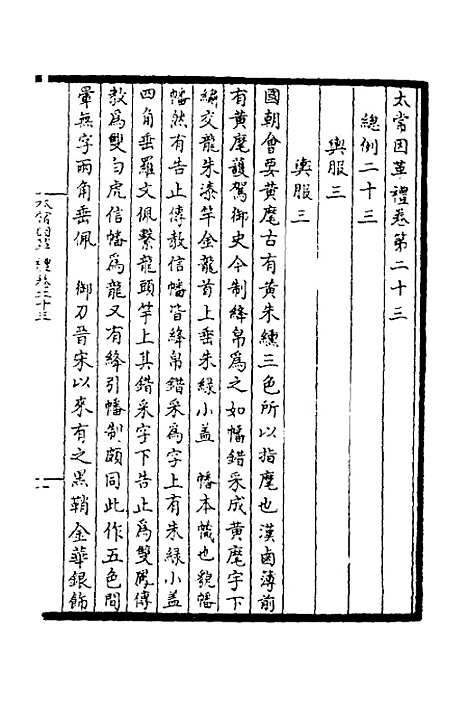 太常因革禮卷第二十三
總例二十三
輿服三
輿服三
國朝會要黃麾古有黃朱纁三色所以指麾也漢鹵薄前
有黃麾護駕御史今制絳帛為之如幡錯采成黃麾字下
綉交龍朱漆竿金龍首上垂朱綠小蓋 幡本幟也貌幡
幡然有告止傳教信幡皆絳帛錯采為字上有朱綠小蓋
四角垂羅文佩繫龍頭竿上其錯采字下告止為雙鳳傳
教為雙白虎信幡為龍又有絳引幡制頗同此作五色間
暈無字兩角垂佩 御刀晉宋以來有之黑鞘金華銀飾
太常因革禮卷二十三